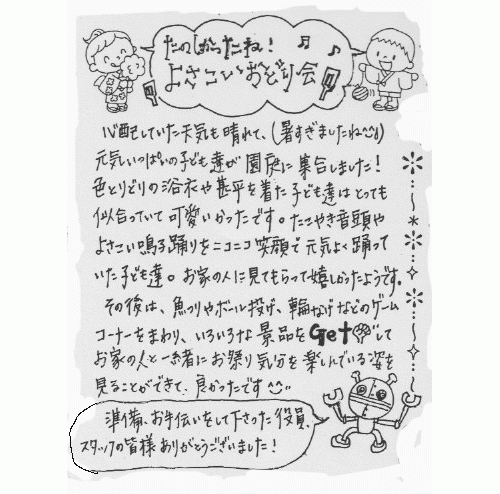 たのしかったね!
よさこいおどり会
心配していた天気も晴れて、(暑すぎましたね)
元気いっぱいの子ども達が園庭に集合しました!
色とりどりの浴衣や甚平を着た子ども達はとっても
似合っていて可愛いかったです。たこやき音頭や
よさこい鳴子踊りをニコニコ笑顔で元気よく踊って
いた子ども達。お家の人に見てもらって嬉しかったようです。
その後は、魚つりやボール投げ、輪なげなどのゲーム
コーナーをまわり、いろいろな景品をGetして
お家の人と一緒にお祭り気分を楽しんでいる姿を
見ることができて、良かったです
準備、お手伝いをして下さった役員、
スタッフの皆様ありがとうございました!